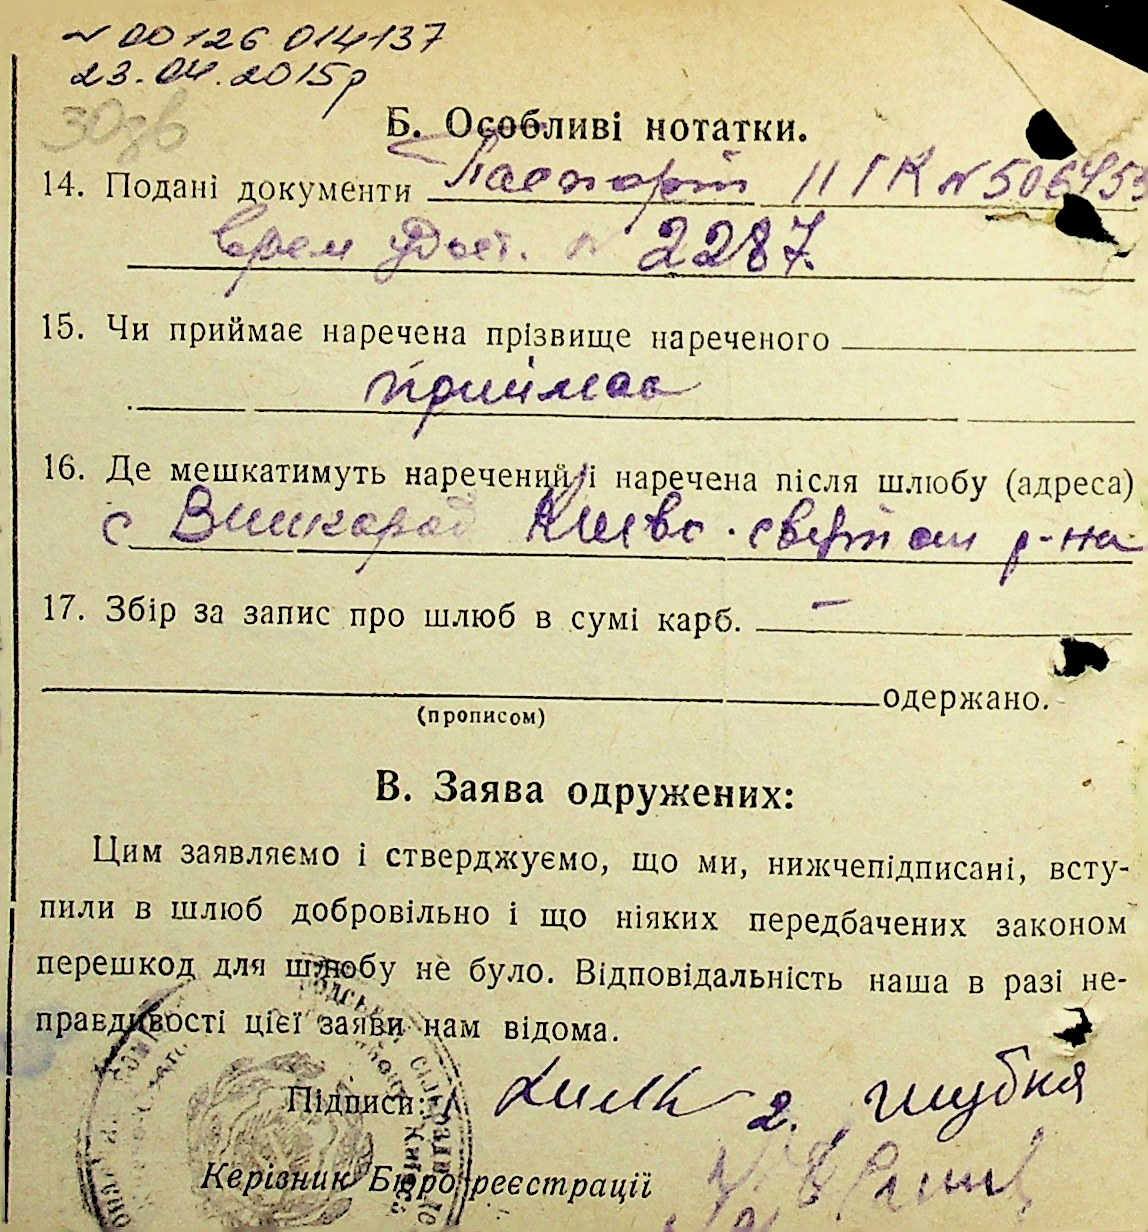 № 00126 014137
23.04.2015р
Б. Особливі нотатки.
14. Подані документи Паспорт II ГК № 506453
врем удост. № 2287.
15. Чи приймає наречена прізвище нареченого
приймає
16. Де мешкатимуть наречений і наречена після шлюбу (адреса)
с Вишгород Києво-святош р-на
17. Збір за запис про шлюб в сумі карб. —
одержано.
(прописом)
В. Заява одружених:
Цим заявляємо і стверджуємо, що ми, нижчепідписані, всту-
пили в шлюб добровільно і що ніяких передбачених законом
перешкод для шлюбу не було. Відповідальність наша в разі не-
правдивості цієї заяви нам відома.
Підписи: 2.
Керівник Бюро реєстрації